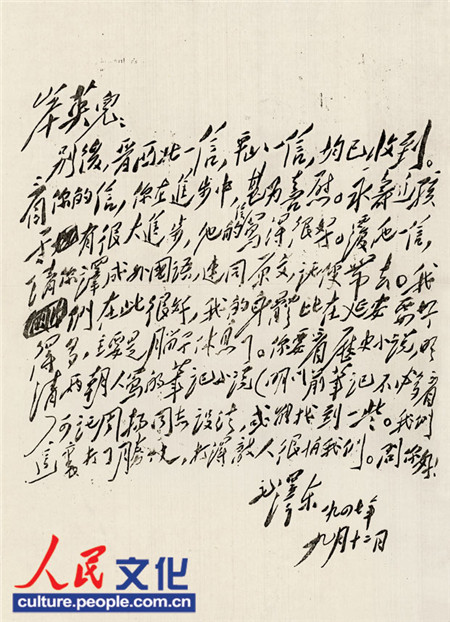 岸英兒：
别後，晋西北一信，平山一信，均已收到。
看你的信，你在進步中，甚为喜慰。永壽这孩
子有很大進步，他的信寫得很好。復他一信，
請你譯成外國語，連同原文，託便带去。我
們在此很好，我的身體比在延安要好
得多，主要是腦子休息了。你要看歷史小説，明
清两朝人寫的筆記小説（明以前筆記不必多看），
可託周揚同志設法，或能找到一些。我們
這裏打了勝仗，打得敵人很怕我們。問你好！
毛澤东
一九四七年
九月十二日
人民文化
culture.people.com.cn